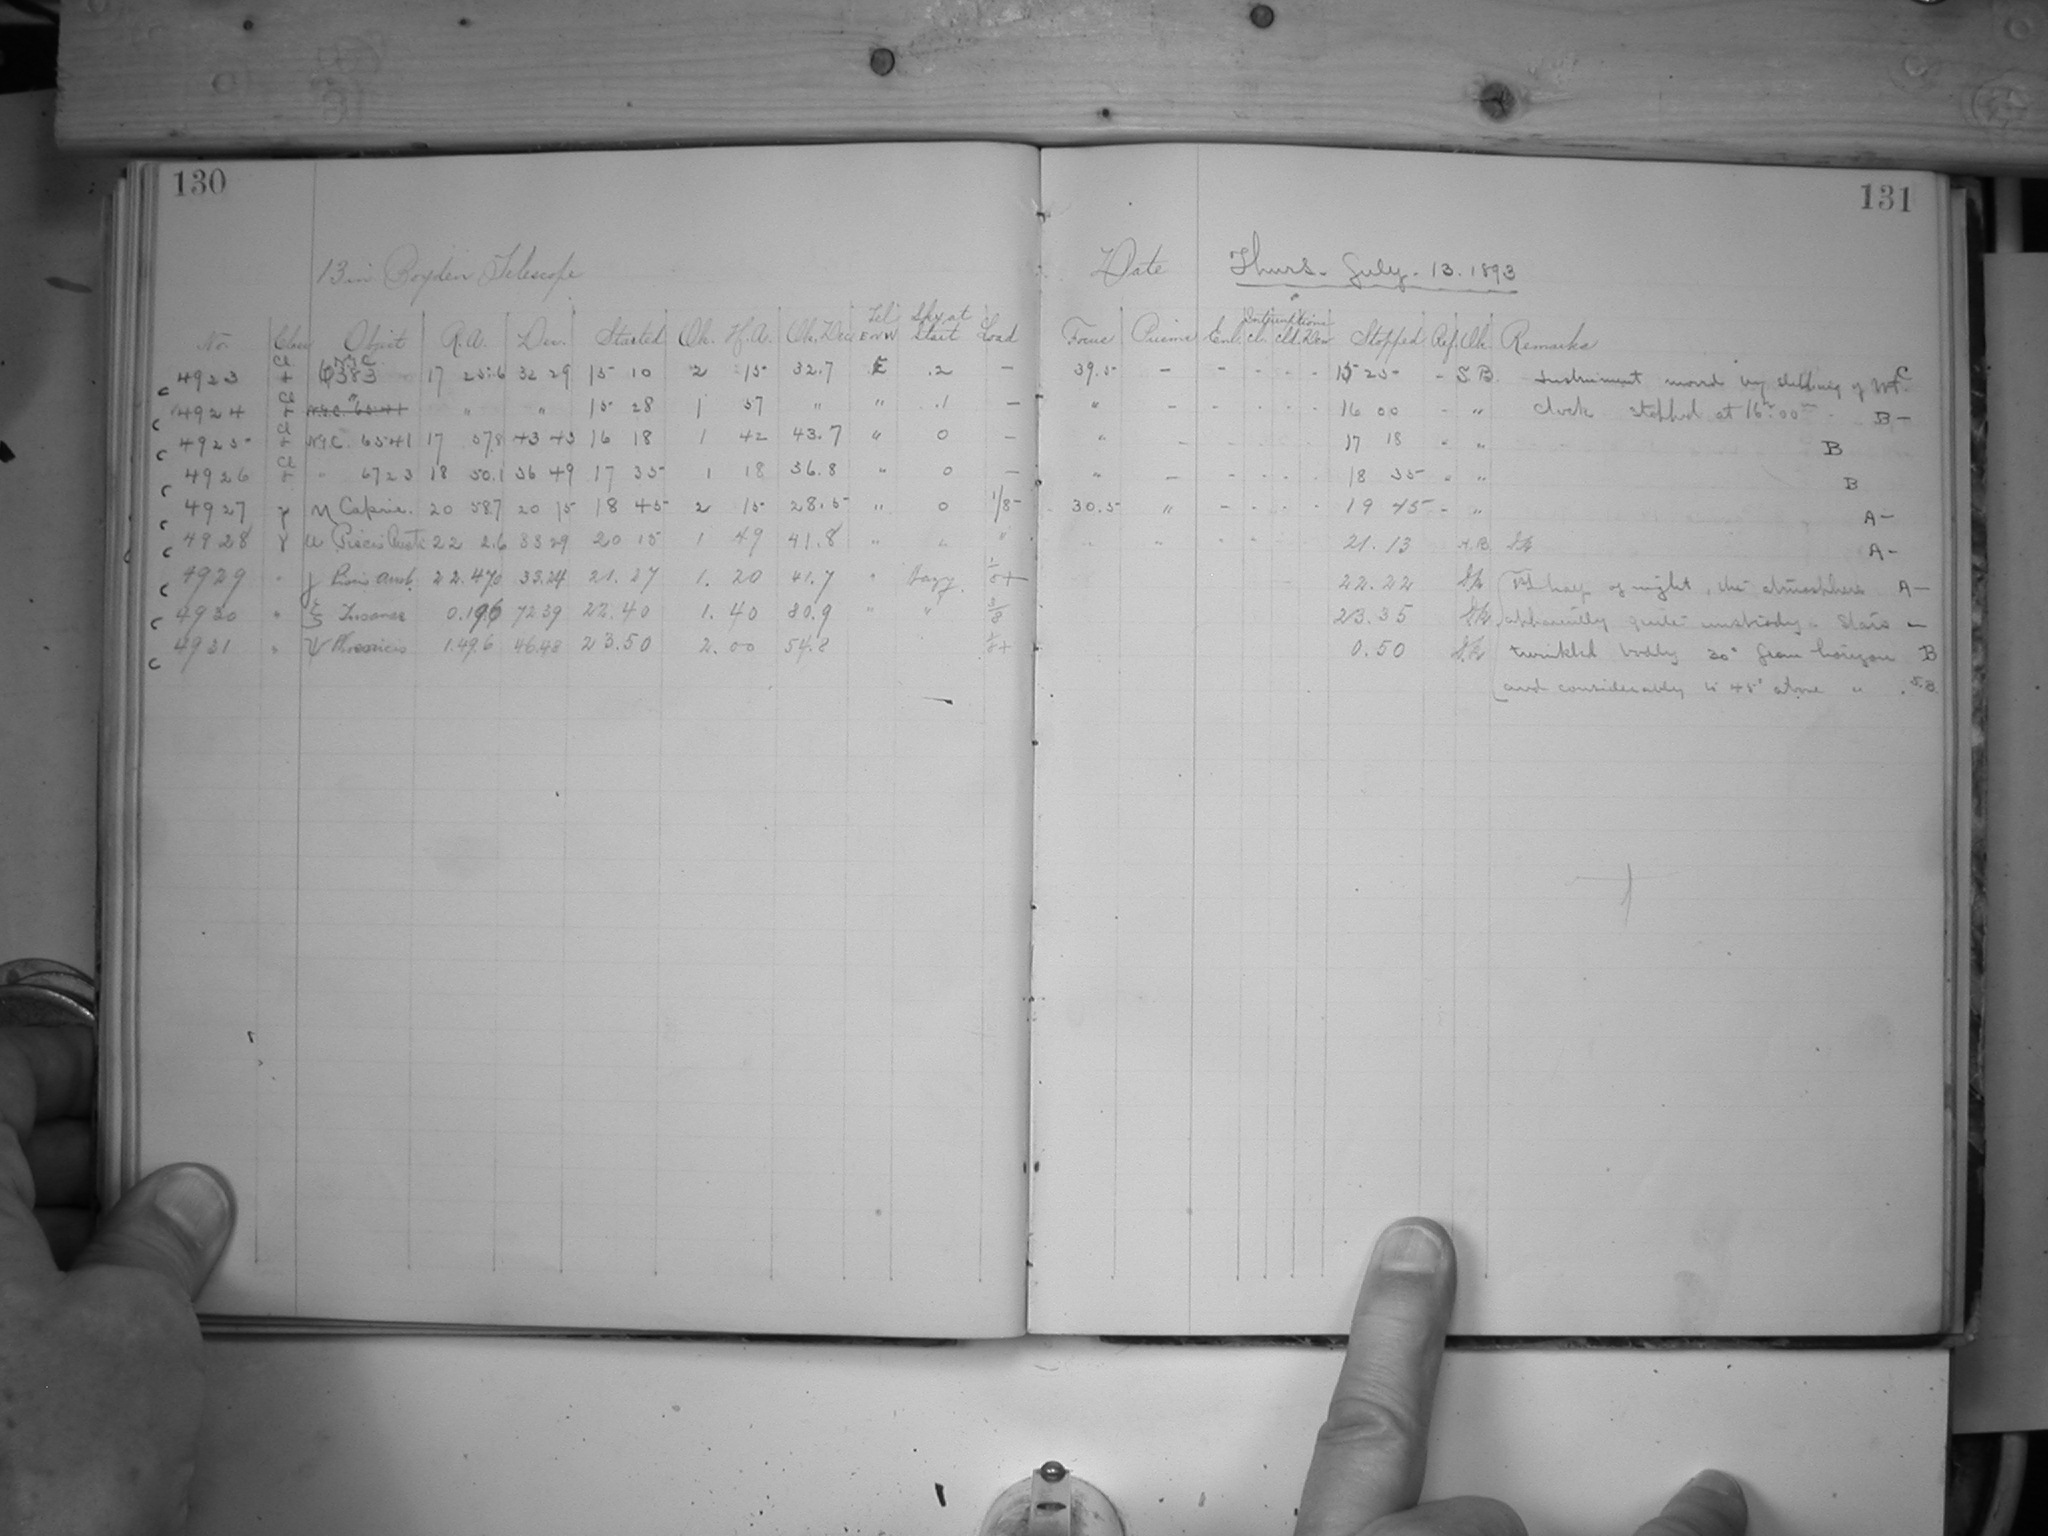 130
131
13 in Boyden Telescope
Date Thurs. July. 13. 1893
No. Class Object R.A. Dec. Started Ob. H.A. Ob. Dec. Tel. E or W Sky at Start Load Focus Prisms Enl. Interruptions Cl. Cld. Dew Stopped Ref. Ob. Remarks
4923 Cl N.G.C. 6383 17 25.6 32 29 15 10 2 15 32.7 E .2 – 39.5 – – - - - 15 25 - S.B. Instrument moved by slipping of Wt. C
4924 Cl " " " 15 28 1 37 " " .1 – " – - - - - 16 00 - " Clock stopped at 16h 00m B–
4925 Cl N.G.C. 6541 17 57.8 43 43 16 18 1 42 43.7 " 0 – " – - - - - 17 18 - " B
4926 Cl " 6723 18 50.1 36 49 17 35 1 18 36.8 " 0 – " – - - - - 18 35 - " B
4927 η Capric. 20 58.7 20 15 18 45 2 15 28.5 " 0 1/8 – 30.5 " – - - - 19 45 - " A–
4928 Piscis Aust. 22 2.6 33 29 20 15 1 49 41.8 " " " " " - - - - 21.13 A–
4929 " γ Piscis Aust. 22.47.0 33.24 21.27 1.20 41.7 " Hazy 22.22 1st half of night, the atmosphere A–
4930 " ξ Tucanae 0.19.6 72 39 22.40 1.40 80.9 " " 3/8 23.35 apparently quite unsteady. Stars –
4931 " ψ Phoenicis 1.49.6 46.48 23.50 2.00 54.2 0.50 twinkled badly 30° from horizon B
and considerably to 45° above " . S.B.